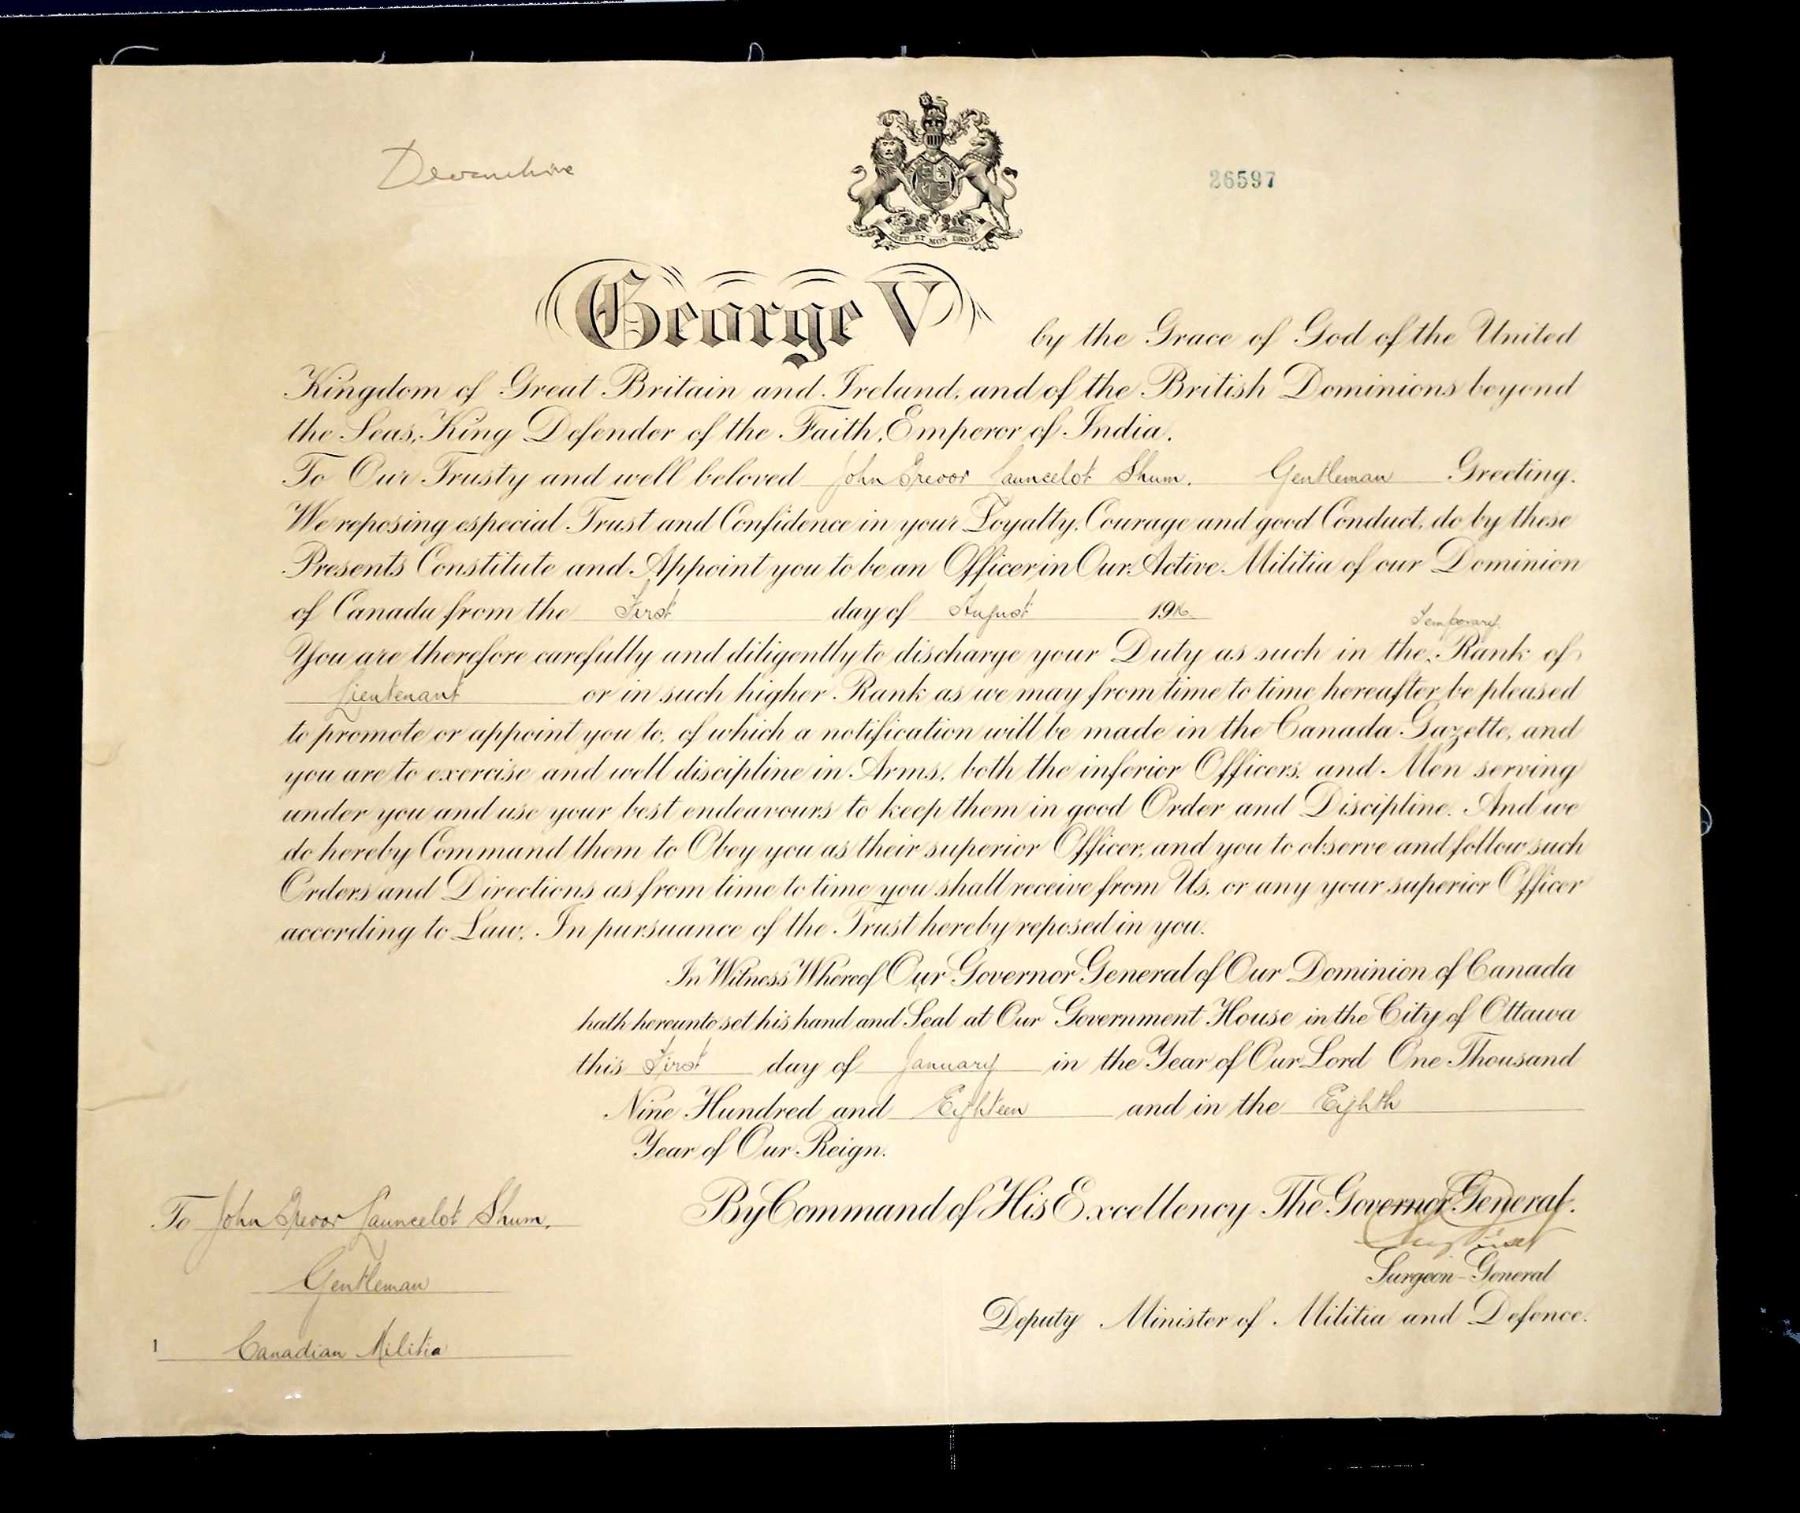 Devonshire
26597
DIEU ET MON DROIT
George V by the Grace of God of the United
Kingdom of Great Britain and Ireland, and of the British Dominions beyond
the Seas, King Defender of the Faith, Emperor of India.
To Our Trusty and well beloved John Trevor Launcelot Shum, Gentleman Greeting.
We reposing especial Trust and Confidence in your Loyalty, Courage and good Conduct, do by these
Presents Constitute and Appoint you to be an Officer in Our Active Militia of our Dominion
of Canada from the First day of August 1916
Temporary
You are therefore carefully and diligently to discharge your Duty as such in the Rank of
Lieutenant or in such higher Rank as we may from time to time hereafter be pleased
to promote or appoint you to, of which a notification will be made in the Canada Gazette, and
you are to exercise and well discipline in Arms, both the inferior Officers, and Men serving
under you and use your best endeavours to keep them in good Order and Discipline. And we
do hereby Command them to Obey you as their superior Officer, and you to observe and follow such
Orders and Directions as from time to time you shall receive from Us, or any your superior Officer
according to Law, In pursuance of the Trust hereby reposed in you.
In Witness Whereof Our Governor General of Our Dominion of Canada
hath hereunto set his hand and Seal at Our Government House in the City of Ottawa
this First day of January in the Year of Our Lord One Thousand
Nine Hundred and Eighteen and in the Eighth
Year of Our Reign.
By Command of His Excellency The Governor General.
Surgeon-General
Deputy Minister of Militia and Defence.
To John Trevor Launcelot Shum,
Gentleman
1 Canadian Militia